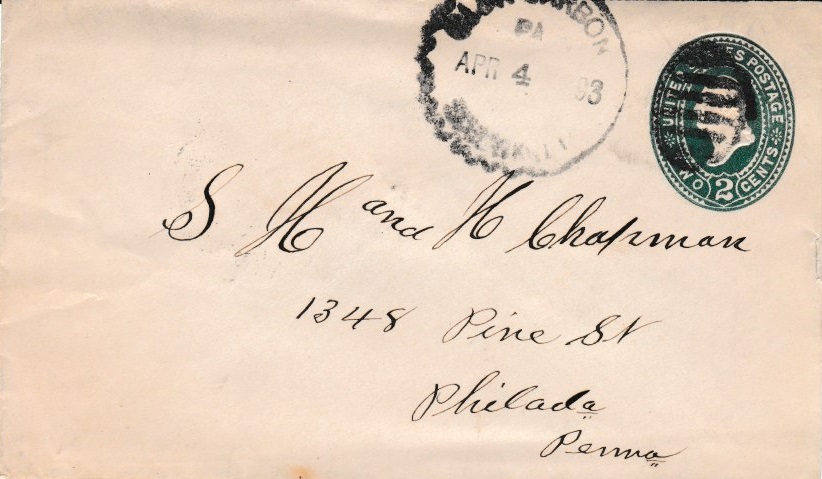 CARBON
PA
APR 4 93
UNITED STATES POSTAGE
TWO 2 CENTS
S H and H Chapman
1348 Pine St
Philada
Penna